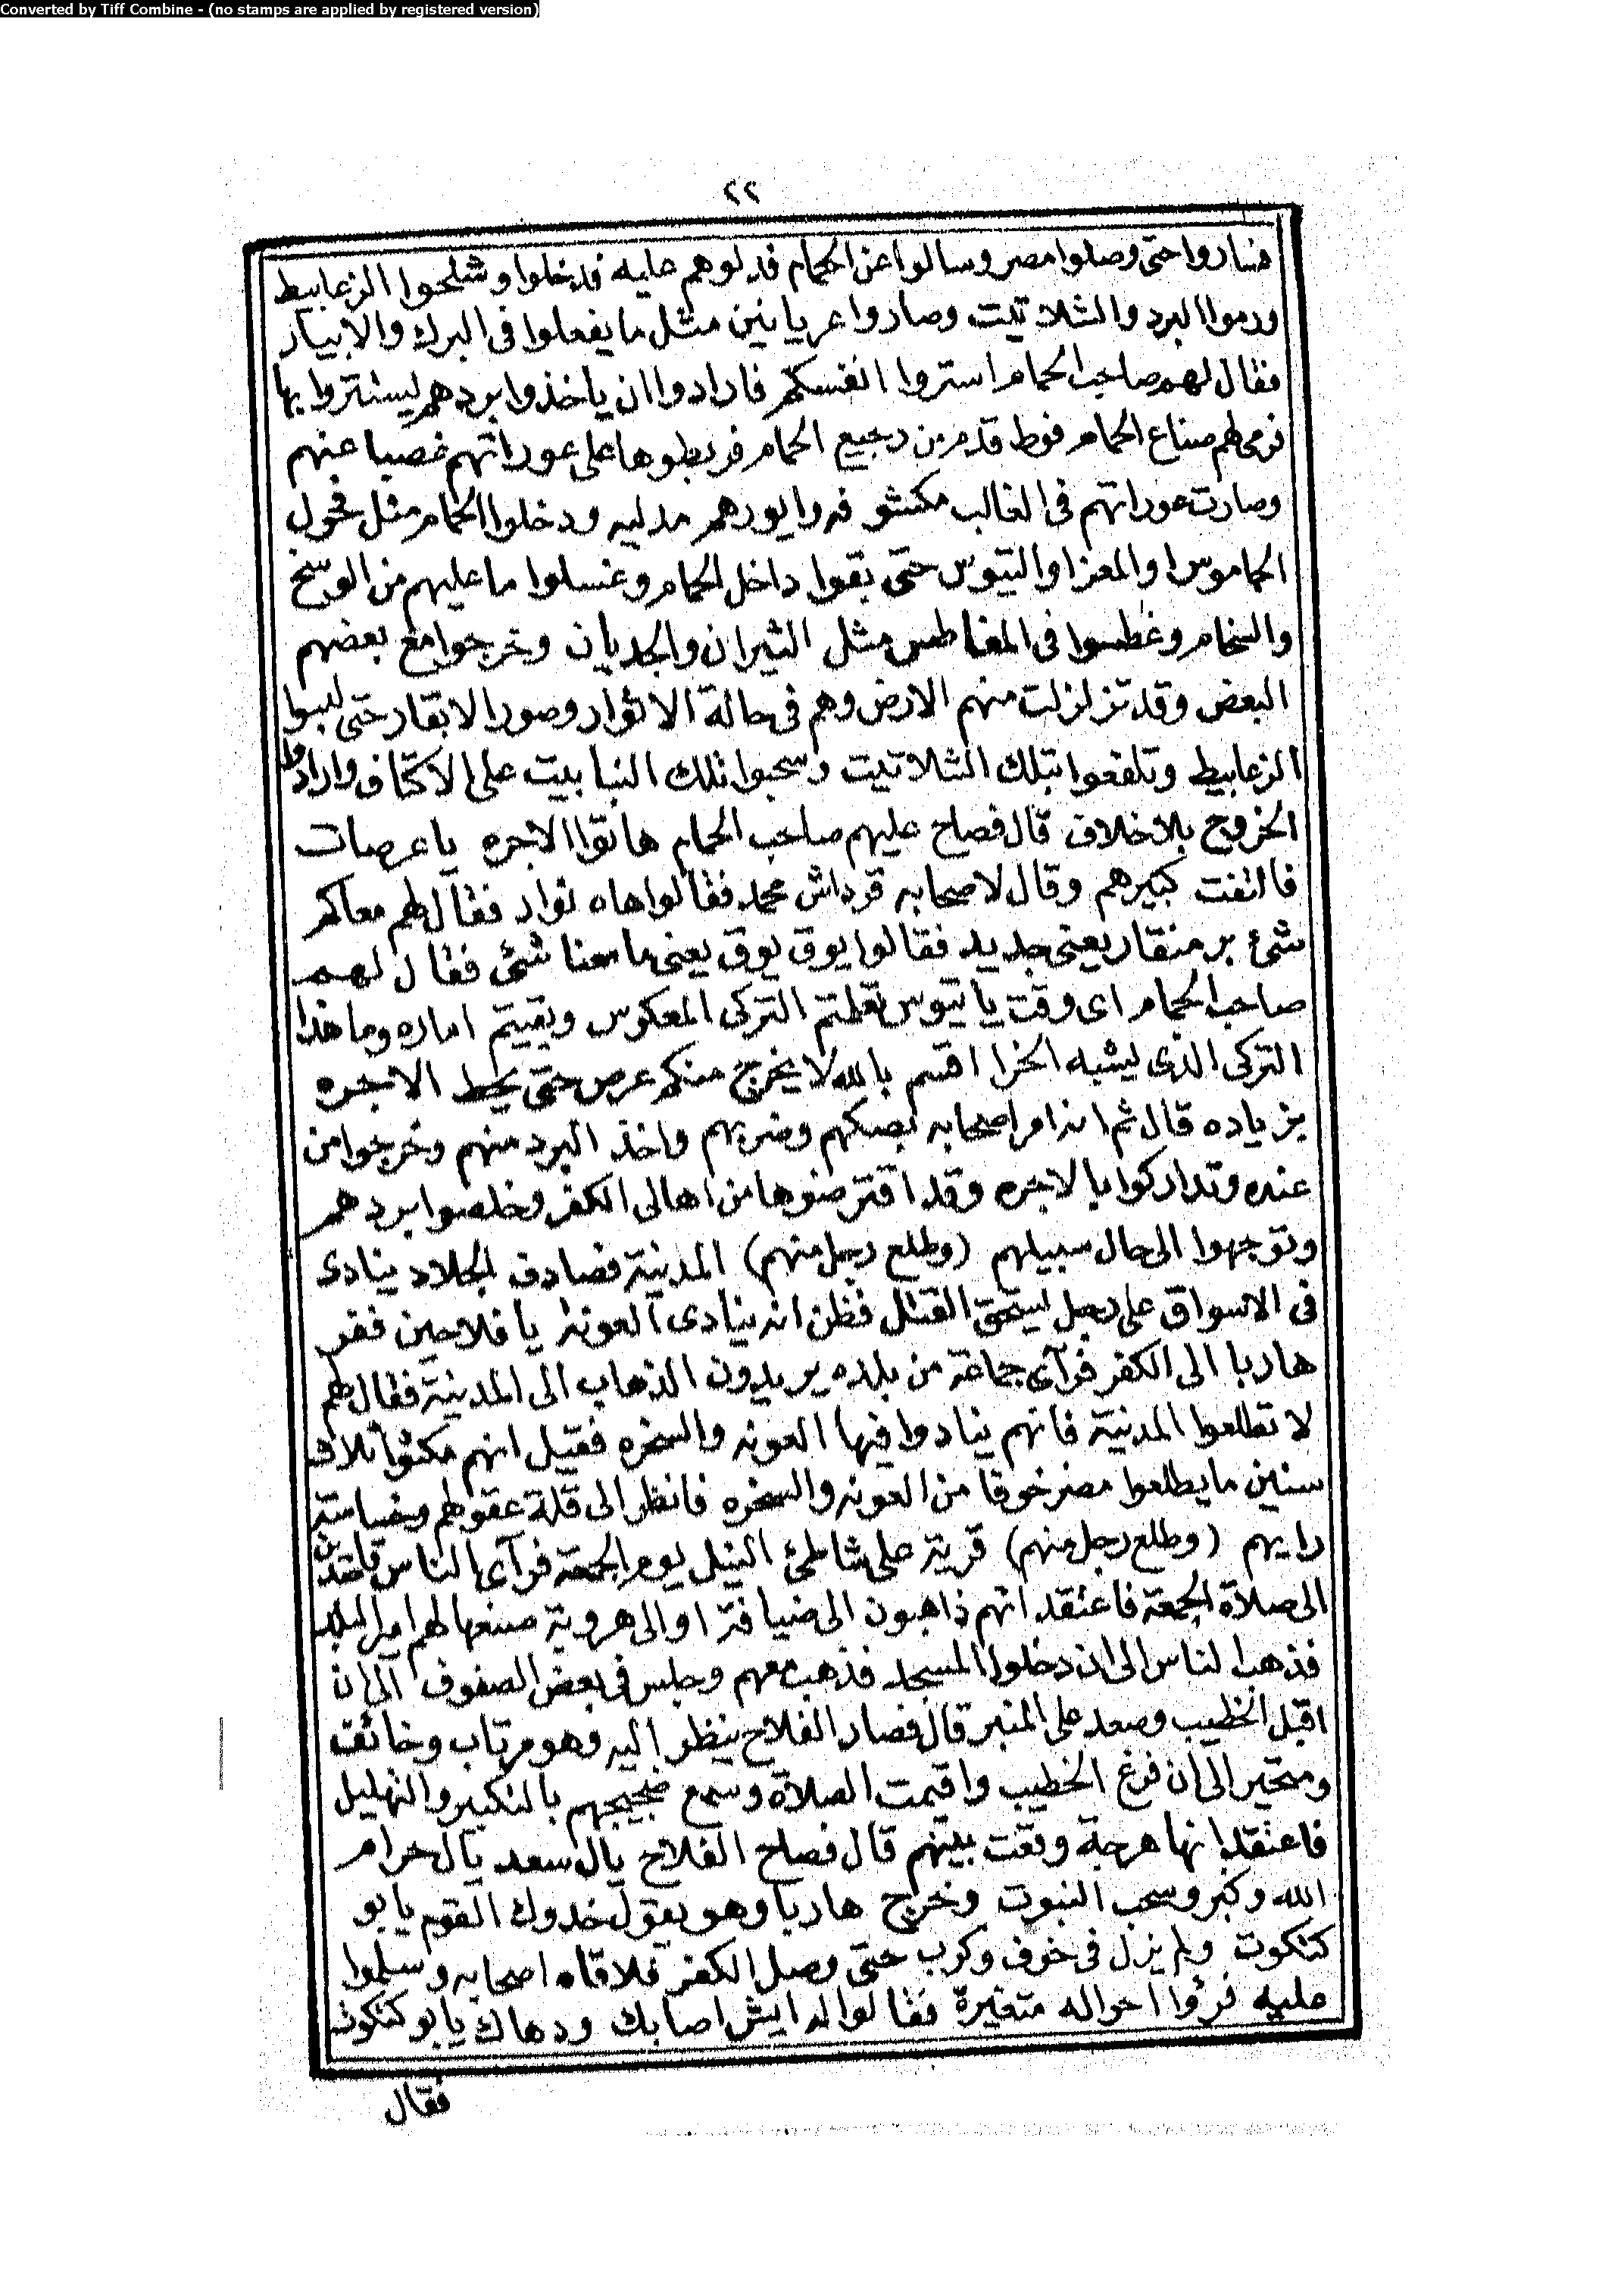 Converted by Tiff Combine - (no stamps are applied by registered version)
٢٢
فساروا حتى وصلوا مصر وسالوا عن الحمام فدلوهم عليه فدخلوا وشلحوا الزعابيط
ورموا البرد والشلاتيت وصاروا عريانين مثل ما يفعلوا فى البرك والابيار
فقال لهم صاحب الحمام استروا انفسكم فارادوا ان ياخذوا بردهم ليستتروا بها
فرمى لهم صناع الحمام فوط قدم من رجيع الحمام فربطوها على عوراتهم غصبا عنهم
وصارت عوراتهم فى الغالب مكشوفه وايورهم مدليه ودخلوا الحمام مثل فحول
الجاموس او المعز او التيوس حتى بقوا داخل الحمام وغسلوا ما عليهم من الوسخ
والسخام وغطسوا فى المغاطس مثل الثيران والجديان وخرجوا مع بعضهم
البعض وقد تزلزلت منهم الارض وهم فى حالة الاثوار وصور الابقار حتى لبسوا
الزعابيط وتلفعوا بتلك الشلاتيت وسحبوا تلك النبابيت على الاكتاف وارادوا
الخروج بلا خلاف قال فصاح عليهم صاحب الحمام هاتوا الاجره يا عرصات
فالتفت كبيرهم وقال لاصحابه قرداش محمد فقالوا هاه نوار فقال لهم معاكم
شئ بر منقار يعنى جديد فقالوا يوق يوق يعنى ما معنا شئ فقال لهم
صاحب الحمام اى وقت يا تيوس تعلمتم التركى المعكوس وبقيتم اماره وما هذا
التركى الذى يشبه الخرا اقسم بالله لا يخرج منكم عرص حتى يحط الاجره
بزياده قال ثم انه امر اصحابه بصكهم وضربهم واخذ البرد منهم وخرجوا من
عنده وتداركوا بالاجره وقد اقترضوها من اهالى الكفر وخلصوا بردهم
وتوجهوا الى حال سبيلهم (وطلع رجل منهم) المدينة فصادف الجلاد ينادى
فى الاسواق على رجل يستحق القتل فظن انه ينادى العونه يا فلاحين ففر
هاربا الى الكفر فرآى جماعة من بلده يريدون الذهاب الى المدينة فقال لهم
لا تطلعوا المدينة فانهم ينادوا فيها العونه والسخره فقيل انهم مكثوا ثلاث
سنين ما يطلعوا مصر خوفا من العونه والسخره فانظر الى قلة عقولهم وخساسة
رايهم (وطلع رجل منهم) قرية على شاطئ النيل يوم الجمعة فرآى الناس قاصدين
الى صلاة الجمعة فاعتقد انهم ذاهبون الى ضيافة او الى هروبة صنعها لهم امير البلد
فذهب الناس الى ان دخلوا المسجد فذهب معهم وجلس فى بعض الصفوف الى ان
اقبل الخطيب وصعد على المنبر قال فصار الفلاح ينظر اليه وهو مرتاب وخائف
ومتحير الى ان فرغ الخطيب واقيمت الصلاة وسمع ضجيجهم بالتكبير والتهليل
فاعتقد انها هرجة وقعت بينهم قال فصاح الفلاح يال سعد يال حرام
الله وكبر وسحب النبوت وخرج هاربا وهو يقول خدوك القوم يا بو
كنكوت ولم يزل فى خوف وكرب حتى وصل الكفر فلاقاه اصحابه وسلموا
عليه فرؤا احواله متغيرة فقالوا له ايش اصابك ودهاك يا بو كنكوت
فقال